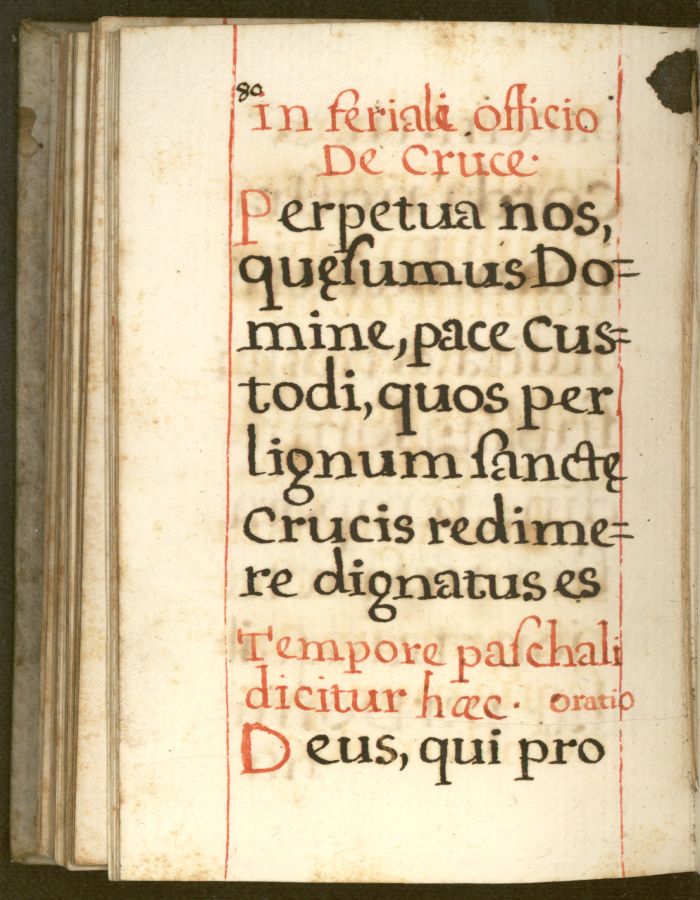 80
In feriali officio
De Cruce.
Perpetua nos,
quęſumus Do=
mine, pace Cus=
todi, quos per
lignum ſanctę
Crucis redime=
re dignatus es
Tempore paſchali
dicitur hæc. oratio
Deus, qui pro